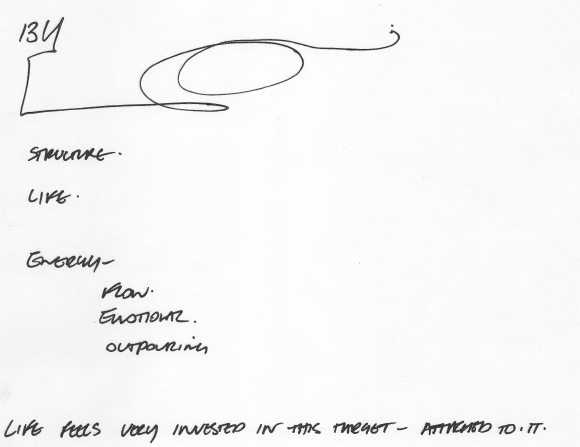 13Y
STRUCTURE.
LIFE.
ENERGY-
FLOW.
EMOTIONAL.
OUTPOURING
LIFE FEELS VERY INVESTED IN THIS TARGET - ATTACHED TO. IT.